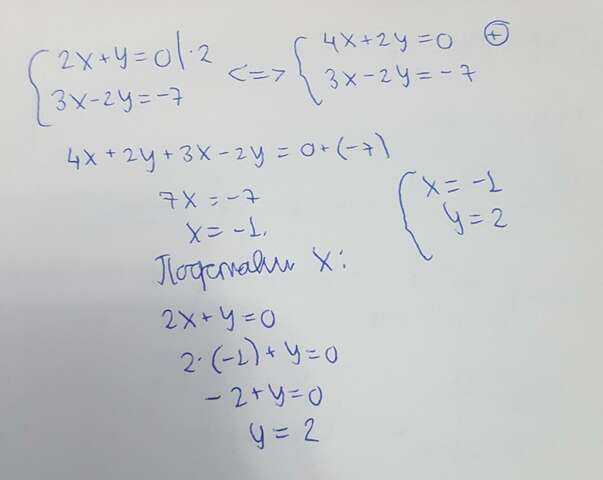 { 2x+y=0 |·2
3x-2y=-7
<=> { 4x+2y=0 ⊕
3x-2y=-7
4x+2y+3x-2y=0+(-7)
7x=-7
x=-1.
{ x=-1
y=2
Подставим x:
2x+y=0
2·(-1)+y=0
-2+y=0
y=2